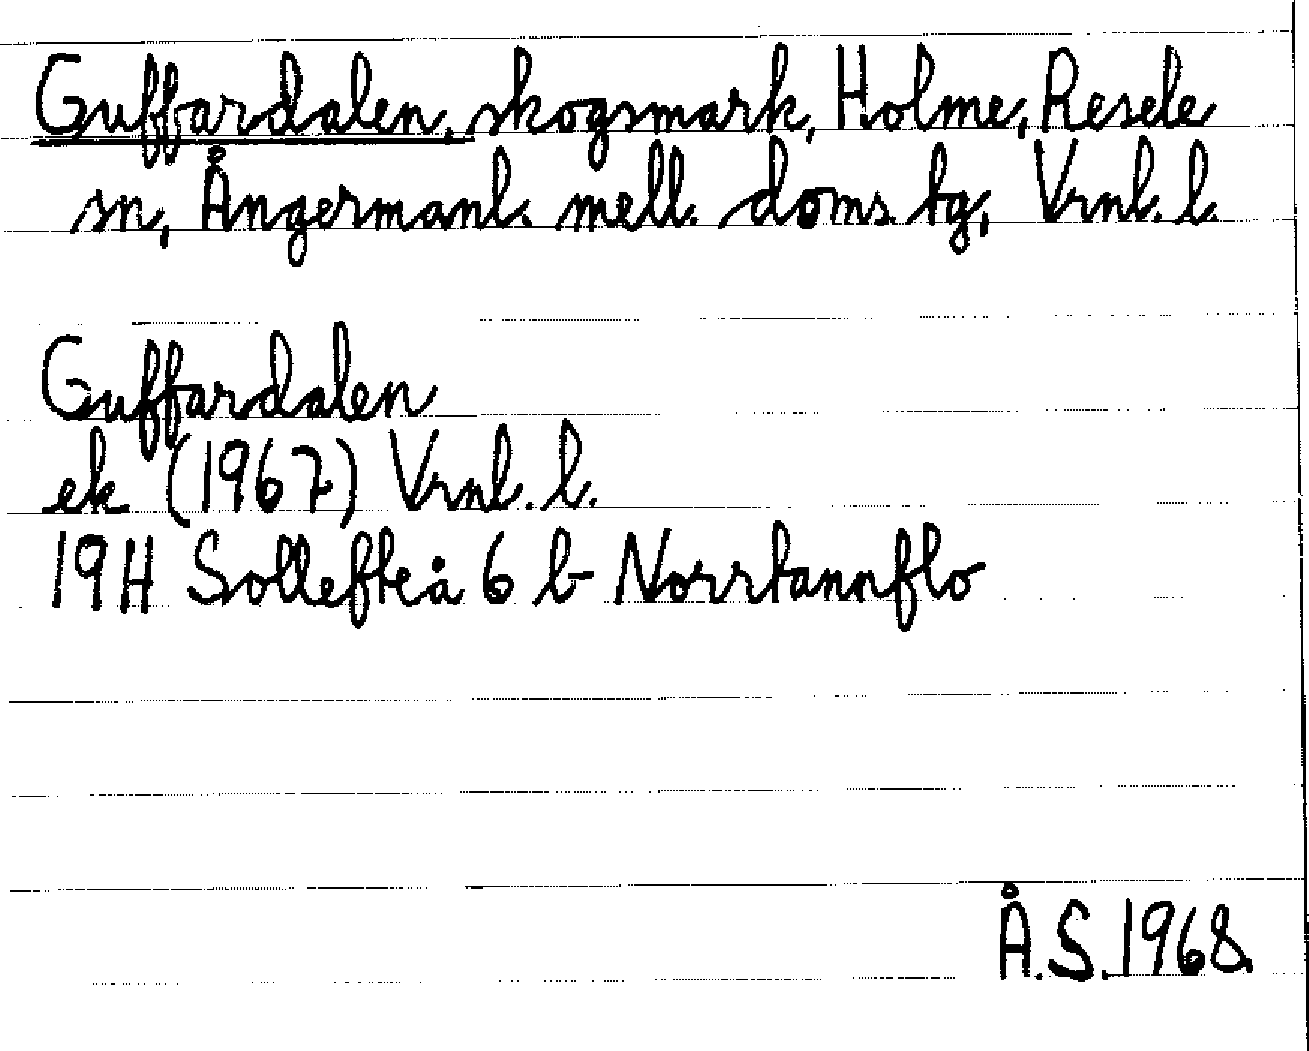 Guffardalen, skogsmark, Holme, Resele
sn, Ångermanl. mell. doms. tg, Vrnl. l.
Guffardalen
ek (1967) Vrnl. l.
19H Sollefteå 6 b Norrtannflo
Å.S. 1968